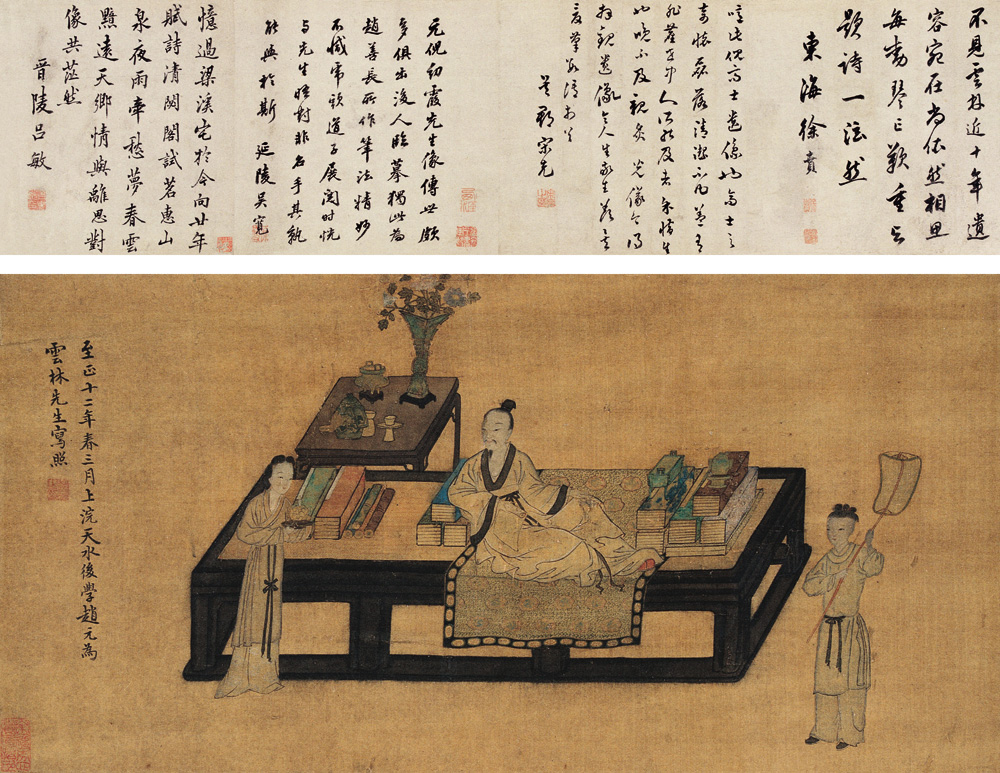 不見雲林近十年遺
容宛在尚依然相思
每動琴亡歎重与
題詩一泫然
東海徐賁
嗟此倪高士遺像也高士之
奇懷磊落清潔不凡蓋有
人所能及者余惜生
也晚不及親炙光儀今得
拜觀遺像令人生敬生羨
元倪幼霞先生像傳世頗
多俱出後人臨摹獨此為
趙善長所作筆法精妙
不慚虎頭道子展閱時恍
与先生晤對非名手其孰
能與於斯 延陵吳寬
憶過梁溪宅於今向廿年
賦詩清閟閣試茗惠山
泉夜雨牽愁夢春雲
黯遠天鄉情與離思對
像共茫然
晉陵呂敏
至正十二年春三月上浣天水後學趙元為
雲林先生寫照